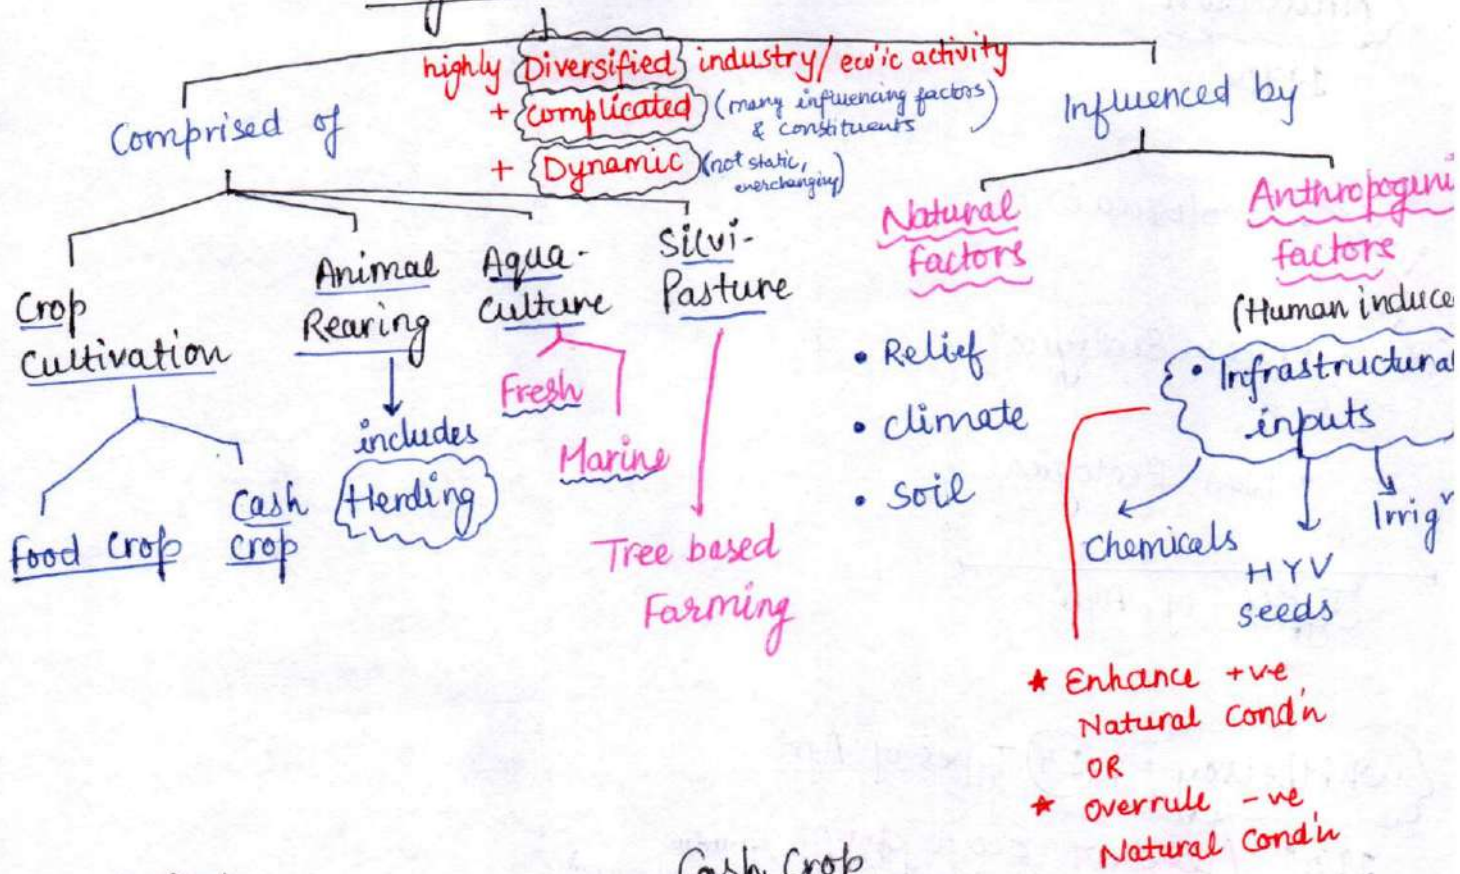 highly Diversified industry/ eco'ic activity
+ complicated (many influencing factors
& constituents)
+ Dynamic (not static,
everchanging)
Comprised of
Influenced by
Crop
Cultivation
Food Crop
Cash
crop
Animal
Rearing
includes
Herding
Aqua-
culture
Fresh
Marine
Silvi-
Pasture
Tree based
Farming
Natural
Factors
• Relief
• climate
• Soil
Anthropogeni
factors
(Human induce
• Infrastructural
inputs
Chemicals
HYV
seeds
Irrigⁿ
★ Enhance +ve
Natural Cond'n
OR
★ Overrule -ve
Natural Cond'n
Cash Crop